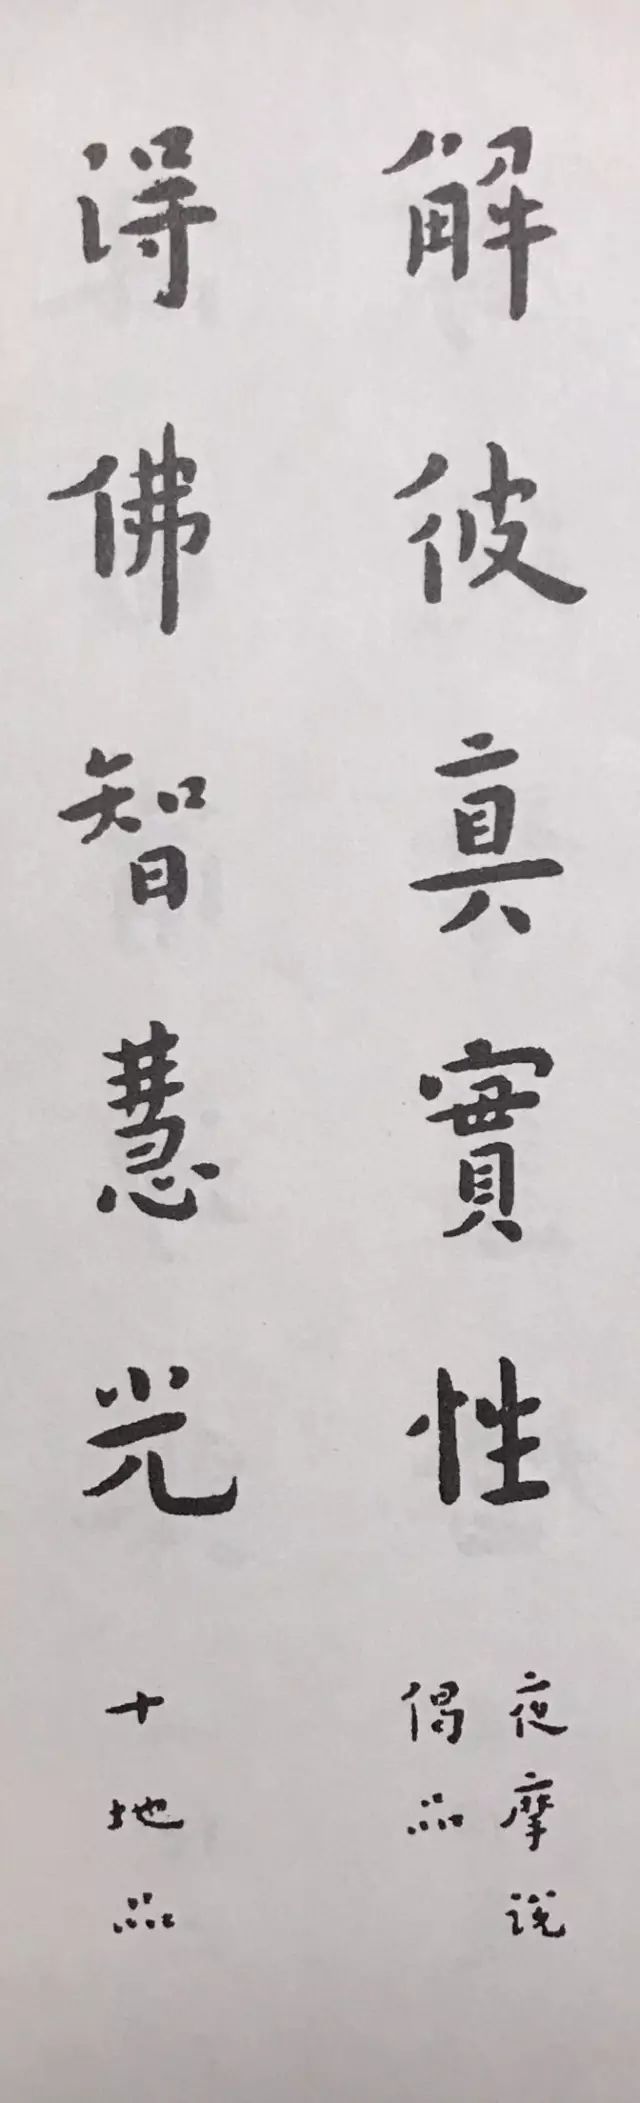 解彼真實性
夜摩説
偈品
得佛智慧光
十地品